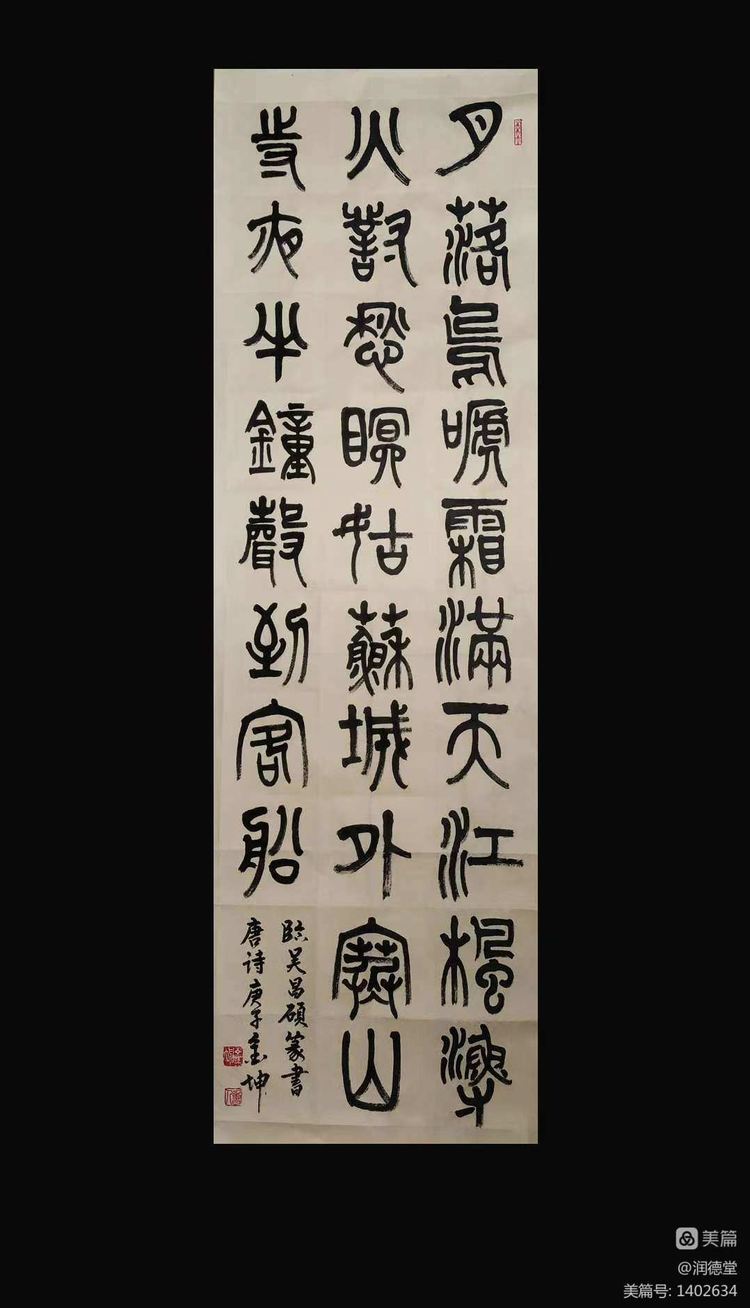 月落烏嗁霜滿天江楓漁
火對愁瞑姑蘇城外寒山
寺夜半鐘聲到客船
臨吴昌硕篆書
唐诗庚子金坤
美篇
@润德堂
美篇号: 1402634